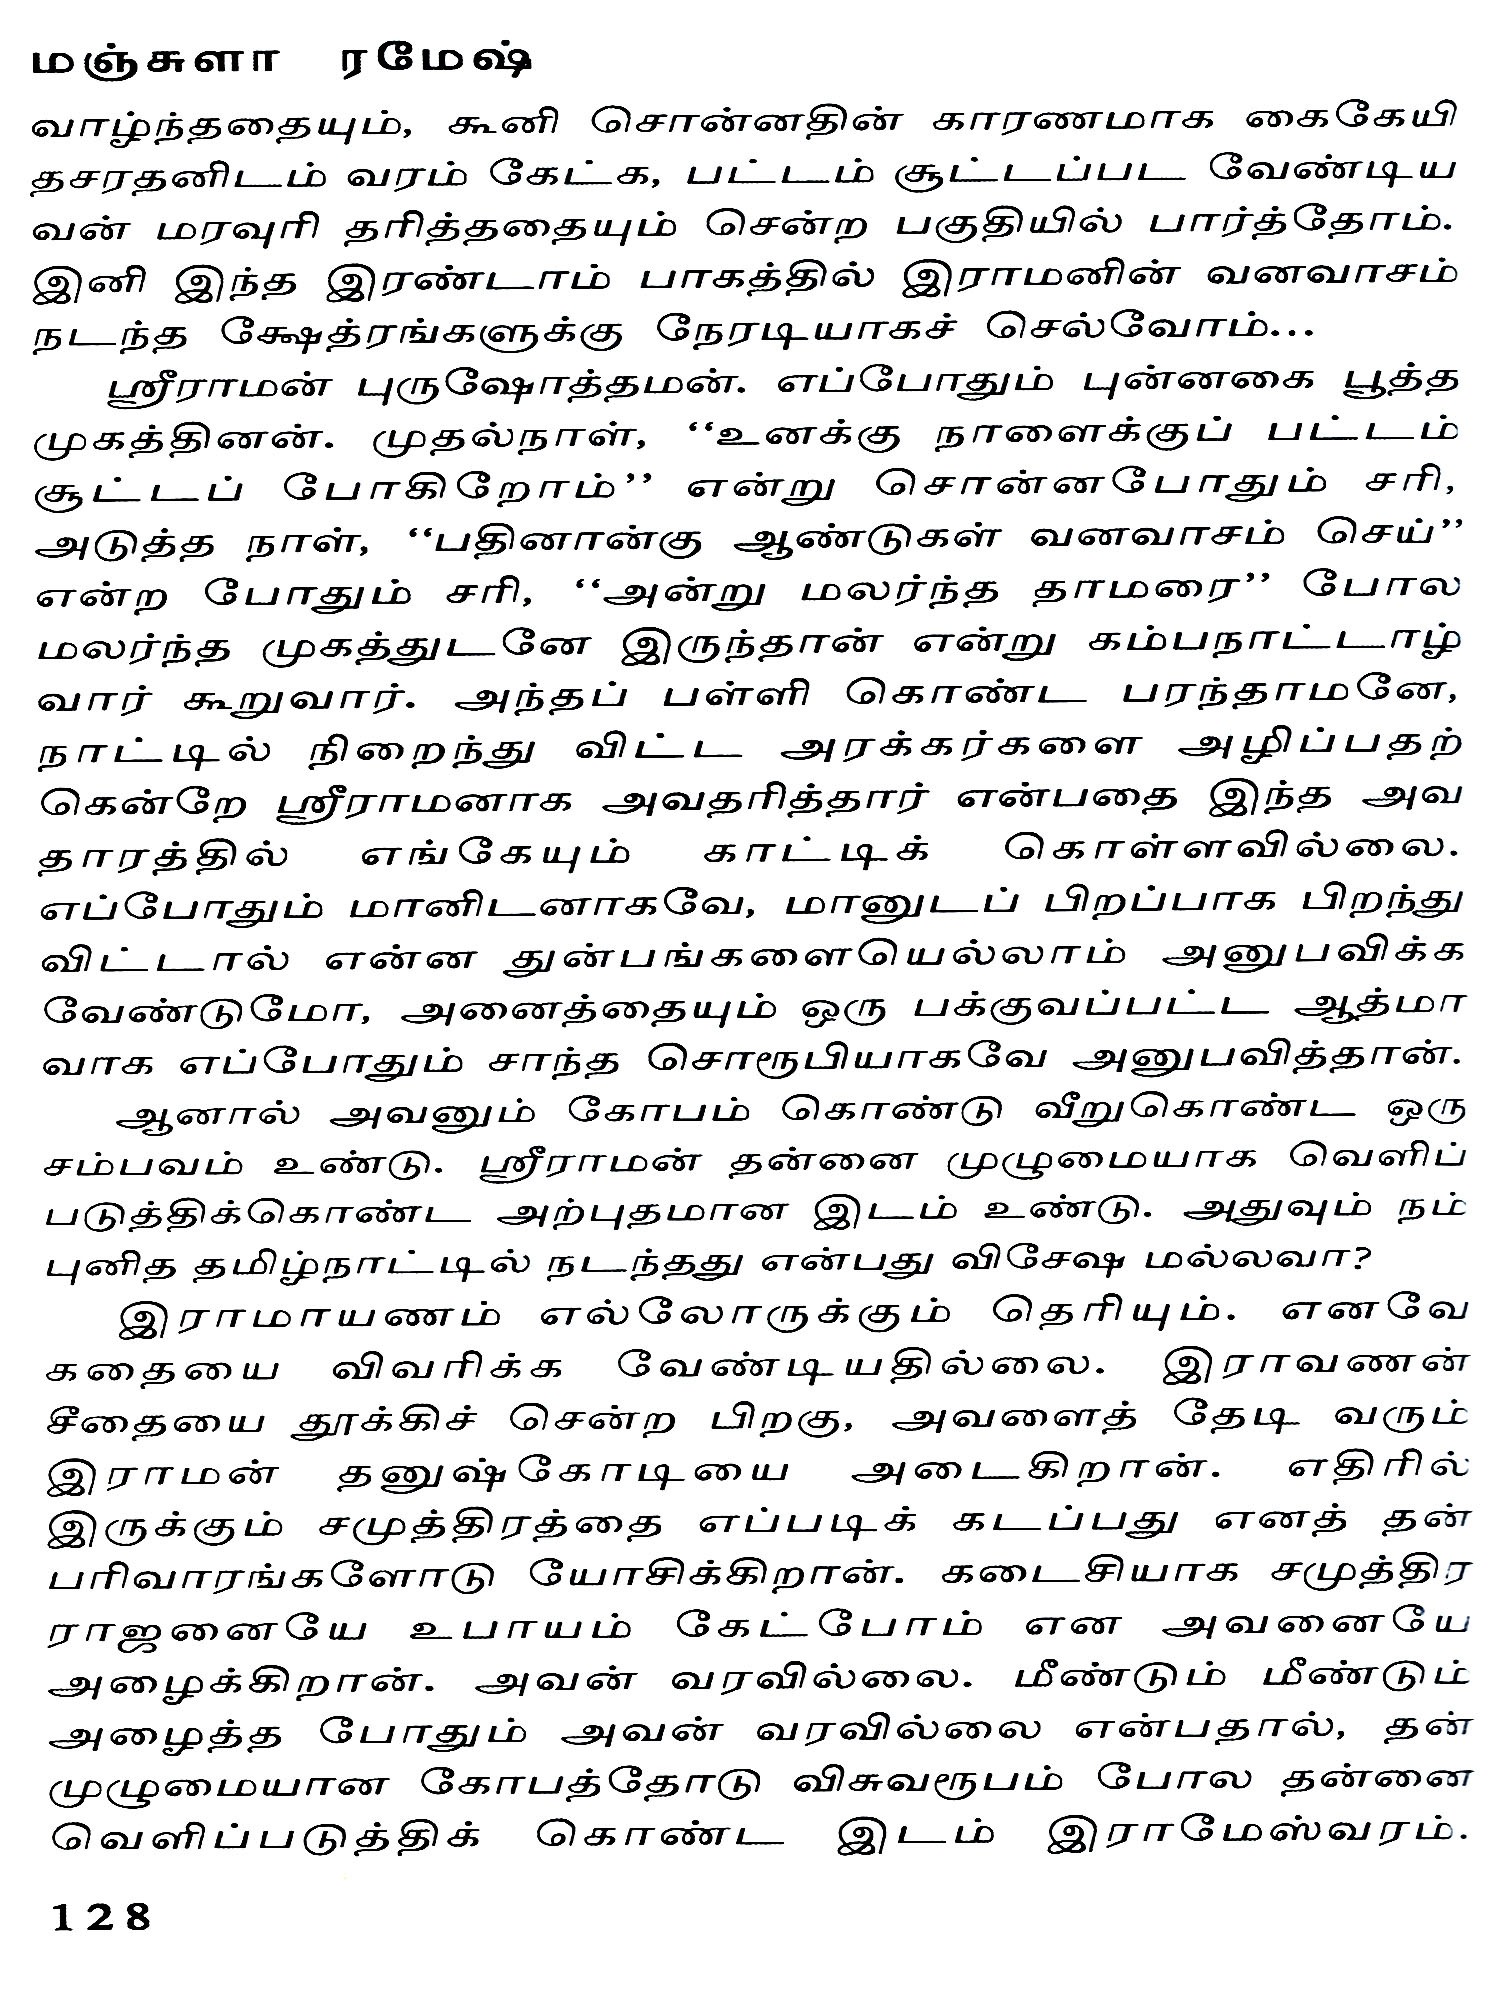 மஞ்சுளா ரமேஷ்
வாழ்ந்ததையும், கூனி சொன்னதின் காரணமாக கைகேயி
தசரதனிடம் வரம் கேட்க, பட்டம் சூட்டப்பட வேண்டிய
வன் மரவுரி தரித்ததையும் சென்ற பகுதியில் பார்த்தோம்.
இனி இந்த இரண்டாம் பாகத்தில் இராமனின் வனவாசம்
நடந்த க்ஷேத்ரங்களுக்கு நேரடியாகச் செல்வோம்...
ஸ்ரீராமன் புருஷோத்தமன். எப்போதும் புன்னகை பூத்த
முகத்தினன். முதல்நாள், ‘‘உனக்கு நாளைக்குப் பட்டம்
சூட்டப் போகிறோம்’’ என்று சொன்னபோதும் சரி,
அடுத்த நாள், ‘‘பதினான்கு ஆண்டுகள் வனவாசம் செய்’’
என்ற போதும் சரி, ‘‘அன்று மலர்ந்த தாமரை’’ போல
மலர்ந்த முகத்துடனே இருந்தான் என்று கம்பநாட்டாழ்
வார் கூறுவார். அந்தப் பள்ளி கொண்ட பரந்தாமனே,
நாட்டில் நிறைந்து விட்ட அரக்கர்களை அழிப்பதற்
கென்றே ஸ்ரீராமனாக அவதரித்தார் என்பதை இந்த அவ
தாரத்தில் எங்கேயும் காட்டிக் கொள்ளவில்லை.
எப்போதும் மானிடனாகவே, மானுடப் பிறப்பாக பிறந்து
விட்டால் என்ன துன்பங்களையெல்லாம் அனுபவிக்க
வேண்டுமோ, அனைத்தையும் ஒரு பக்குவப்பட்ட ஆத்மா
வாக எப்போதும் சாந்த சொரூபியாகவே அனுபவித்தான்.
ஆனால் அவனும் கோபம் கொண்டு வீறுகொண்ட ஒரு
சம்பவம் உண்டு. ஸ்ரீராமன் தன்னை முழுமையாக வெளிப்
படுத்திக்கொண்ட அற்புதமான இடம் உண்டு. அதுவும் நம்
புனித தமிழ்நாட்டில் நடந்தது என்பது விசேஷ மல்லவா?
இராமாயணம் எல்லோருக்கும் தெரியும். எனவே
கதையை விவரிக்க வேண்டியதில்லை. இராவணன்
சீதையை தூக்கிச் சென்ற பிறகு, அவளைத் தேடி வரும்
இராமன் தனுஷ்கோடியை அடைகிறான். எதிரில்
இருக்கும் சமுத்திரத்தை எப்படிக் கடப்பது எனத் தன்
பரிவாரங்களோடு யோசிக்கிறான். கடைசியாக சமுத்திர
ராஜனையே உபாயம் கேட்போம் என அவனையே
அழைக்கிறான். அவன் வரவில்லை. மீண்டும் மீண்டும்
அழைத்த போதும் அவன் வரவில்லை என்பதால், தன்
முழுமையான கோபத்தோடு விசுவரூபம் போல தன்னை
வெளிப்படுத்திக் கொண்ட இடம் இராமேஸ்வரம்.
128